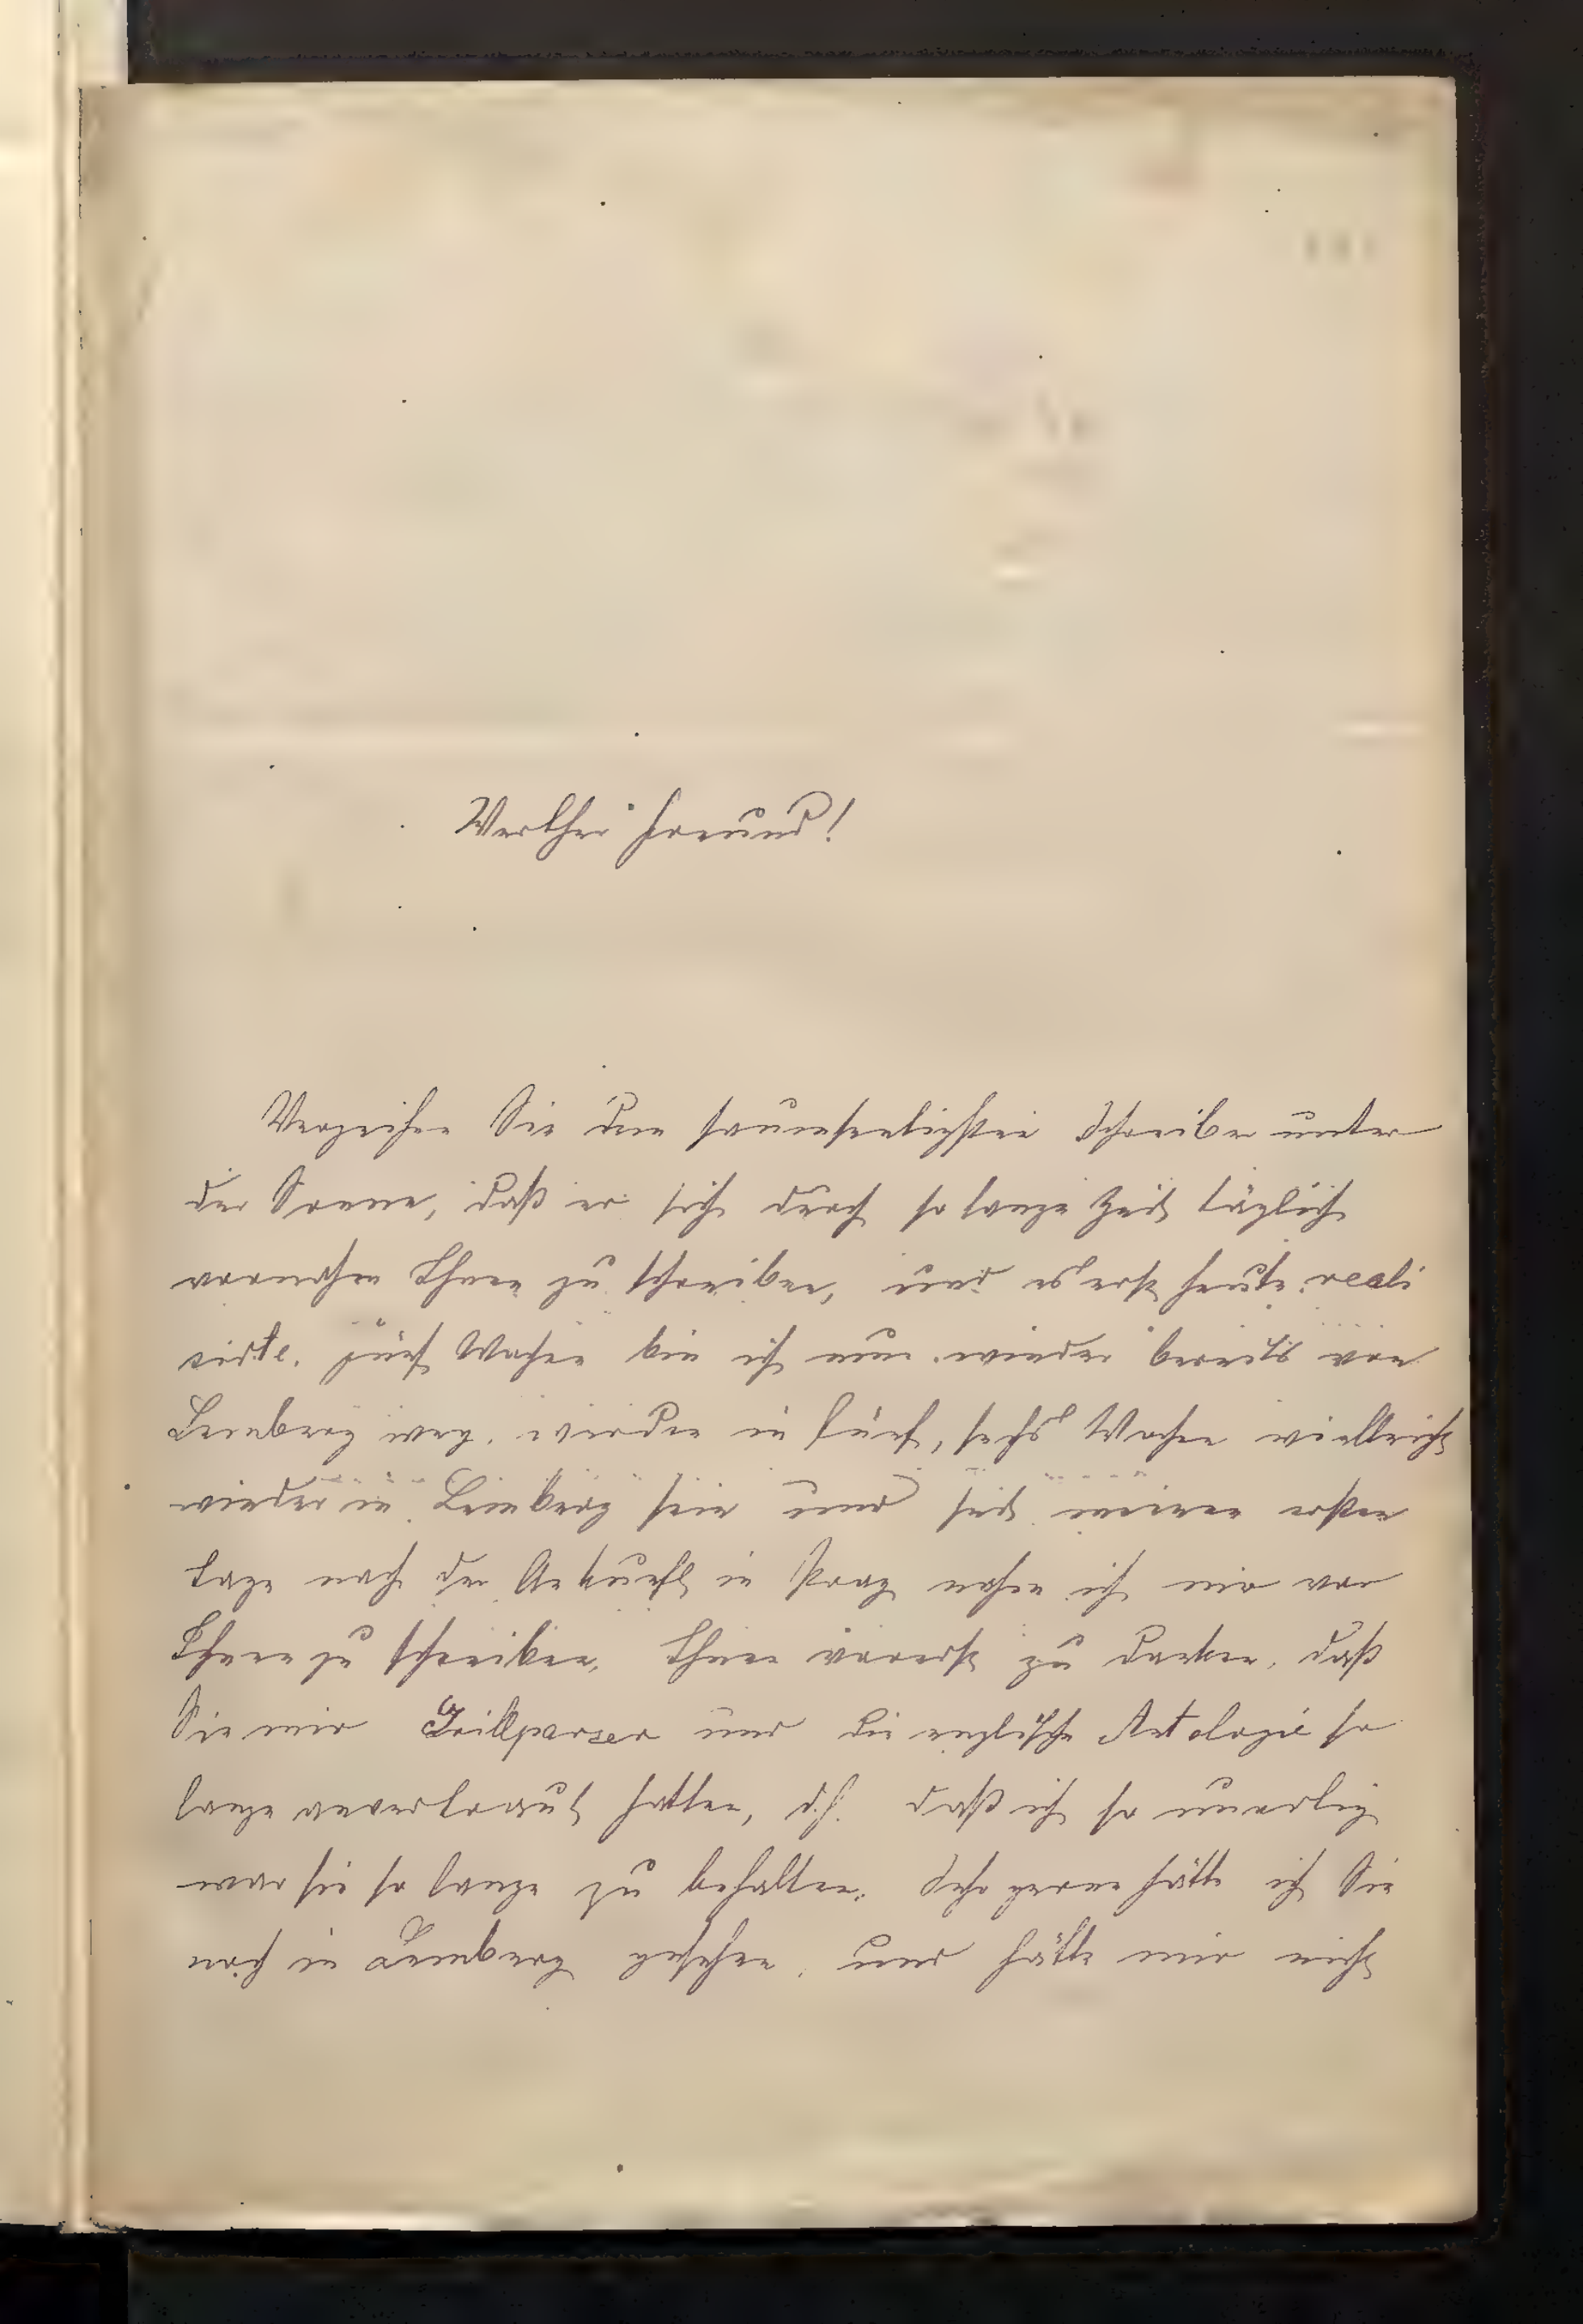 Werther Freund!
Verzeihen Sie dem saumseelichsten Schreiber unter
der Sonne, daß er sich durch so lange Zeit täglich
vornahm Ihnen zu schreiben, und es erst heute reali
sirte. Fünf Wochen bin ich nun wieder bereits von
Lemberg weg, werden in fünf, sechs Wochen vielleicht
wieder in Lemberg sein und seit meinen ersten
Tage nach der Ankunft in Prag nahm ich mir vor
Ihnen zu schreiben, Ihnen vorerst zu danken, daß
Sie mir Grillparzer und die englische Antologie so
lange anvertraut hatten, d.h. daß ich so unartig
war sie so lange zu behalten. Sehr gerne hätte ich Sie
noch in Lemberg gesehen, und hätte mir nicht